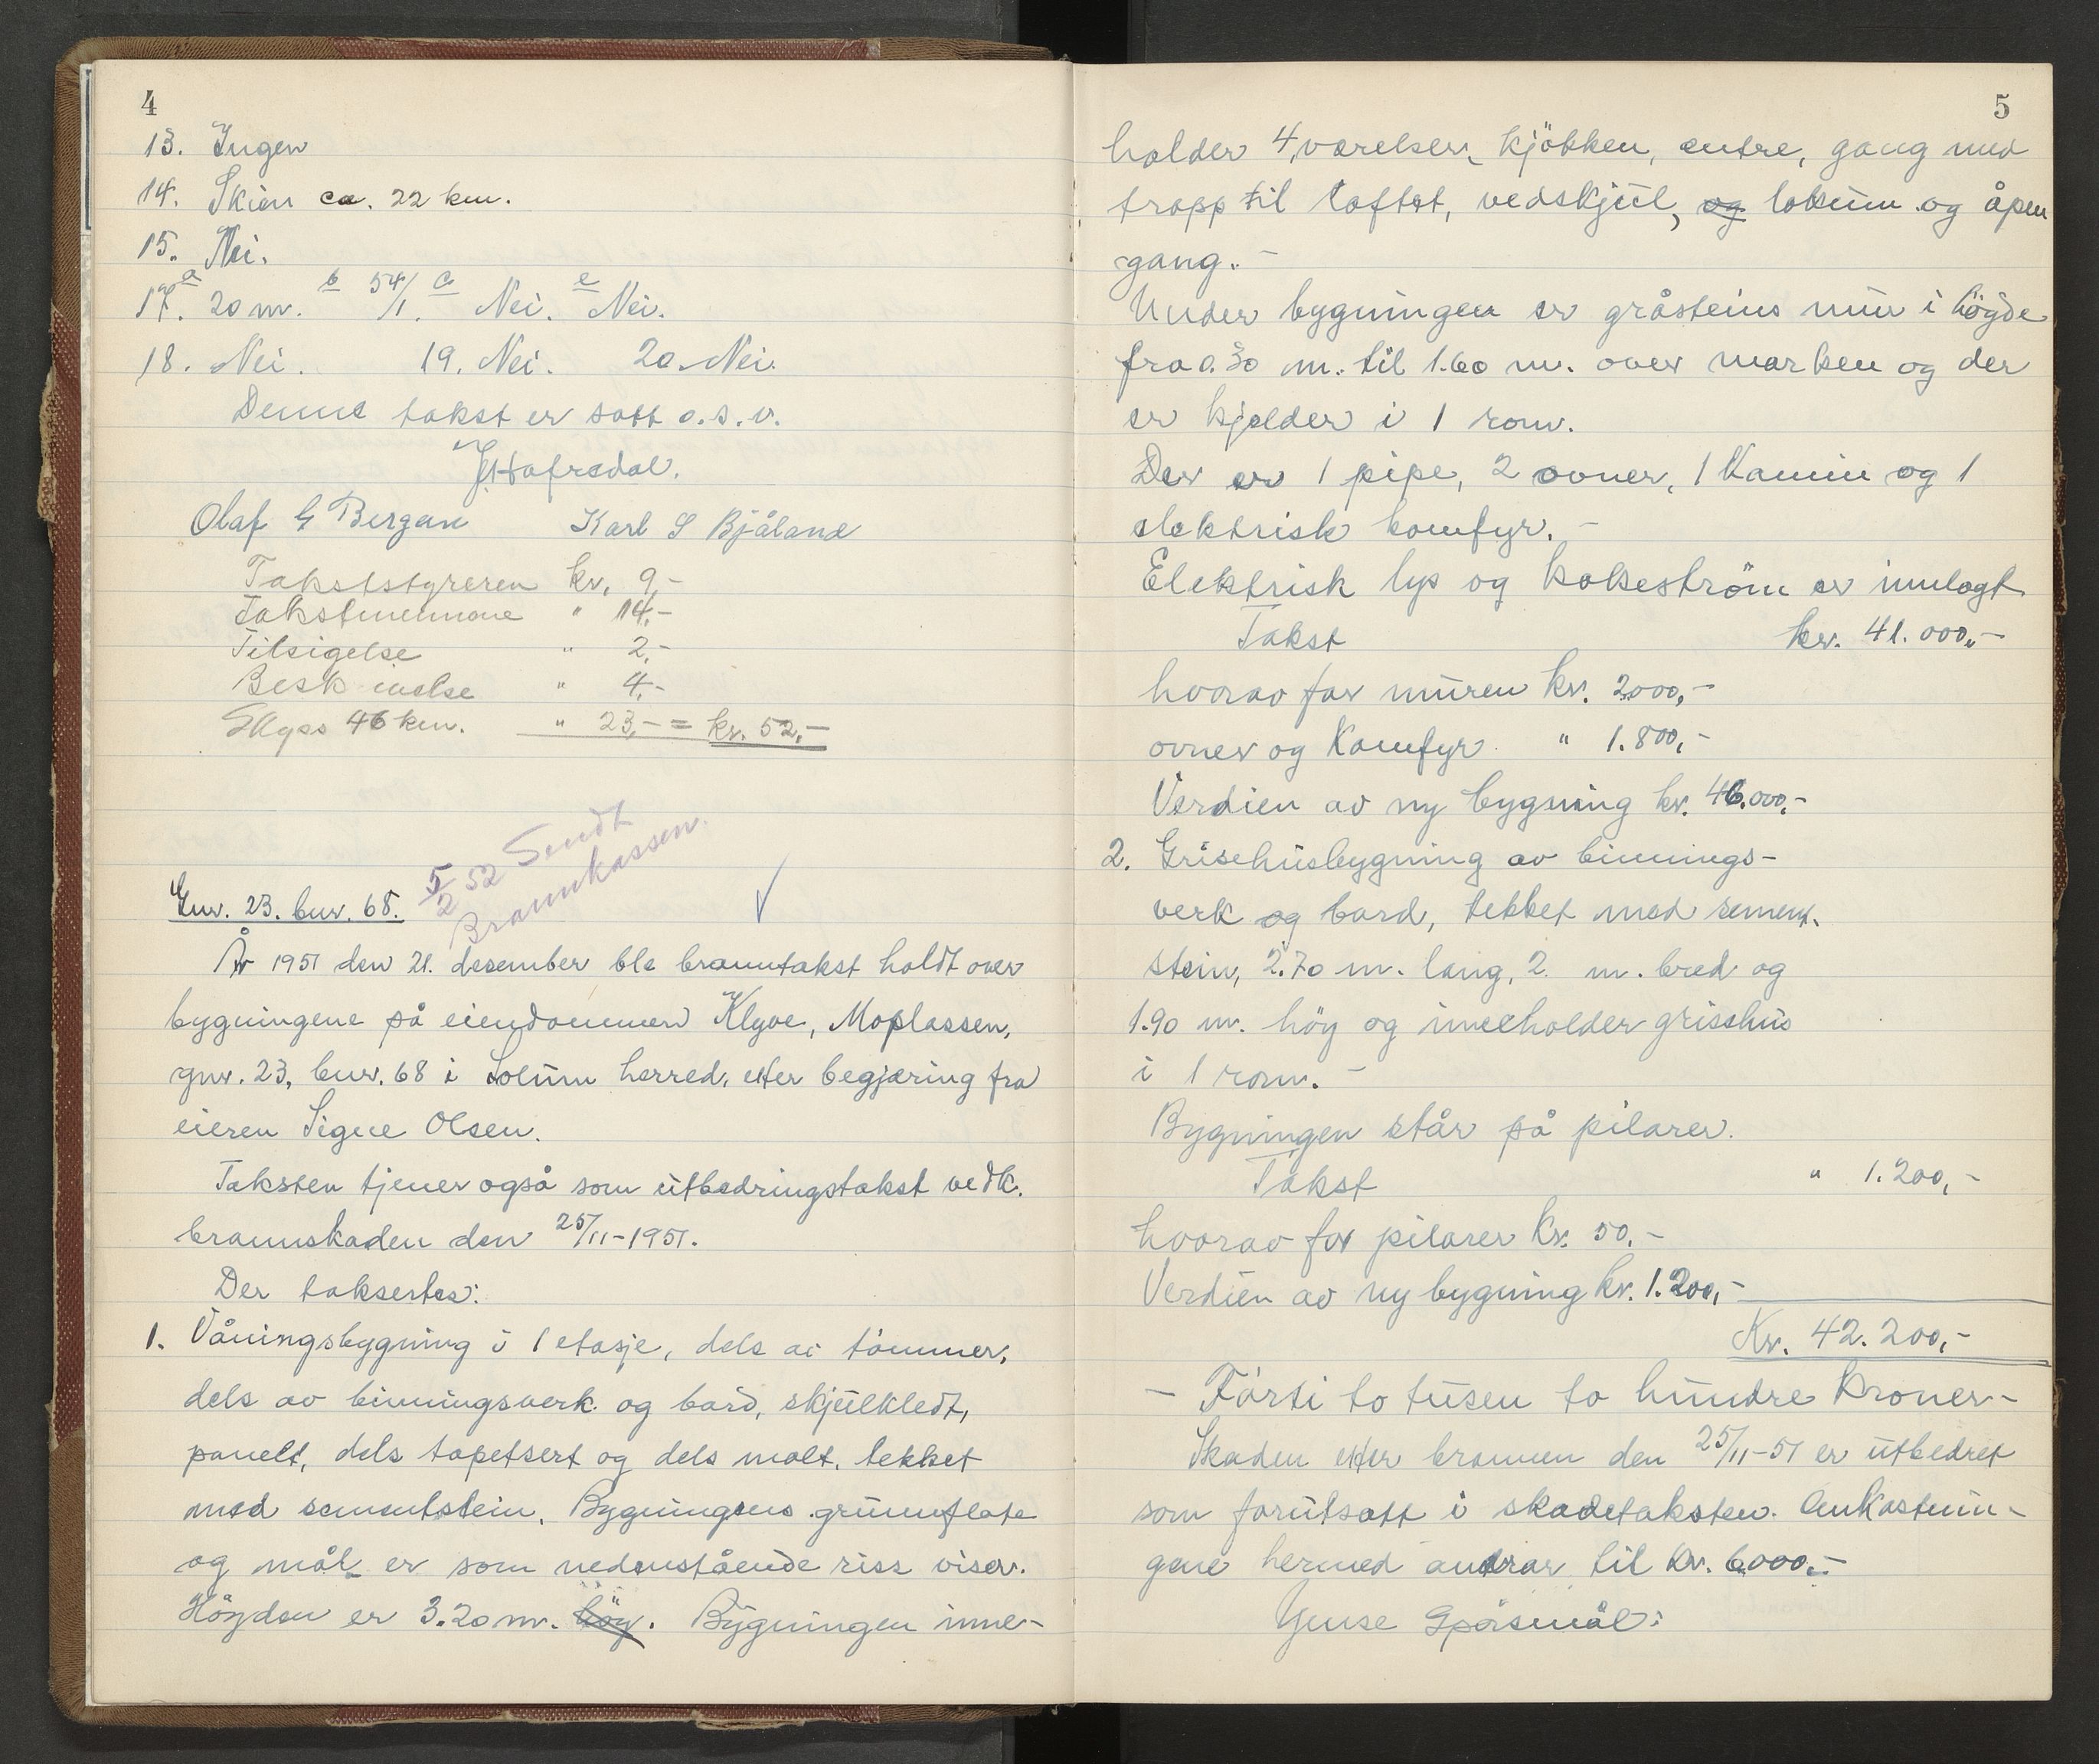 4
13. Ingen
14. Skien ca. 22 km.
15. Nei.
17. a 20 m. b 54/1. c Nei. e Nei.
18. Nei. 19. Nei. 20. Nei.
Denne takst er satt o.s.v.
Hafredal.
Olaf G Bergan Karl S Bjåland
Takststyreren kr. 9,-
Takstmennene " 14,-
Tilsigelse " 2,-
Beskrivelse " 4,-
Skyss 46 km. " 23,- = kr. 52,-
5/2 52 Sendt
Brannkassen.
Gnr. 23. bnr. 68.
År 1951 den 21. desember ble branntakst holdt over
bygningene på eiendommen Klyve, Moplassen,
gnr. 23, bnr. 68 i Solum herred, etter begjæring fra
eieren Signe Olsen.
Taksten tjener også som utbedringstakst vedk.
brannskaden den 25/11-1951.
Der taksertes:
1. Våningsbygning i 1 etasje, dels av tömmer,
dels av binningsverk og bord, skjulkledt,
panelt, dels tapetsert og dels malt, tekket
med sementstein. Bygningens grunnflate
og mål er som nedenstående riss viser.
Höyden er 3.20 m. höy. Bygningen inne-
5
holder 4 værelser, kjökken, entre, gang med
trapp til loftet, vedskjul, og lokum og åpen
gang.-
Under bygningen er gråsteins mur i höyde
fra 0.30 m. til 1.60 m. over marken og der
er kjelder i 1 rom.
Der er 1 pipe, 2 ovner, 1 kamin og 1
elektrisk komfyr.-
Elektrisk lys og kokeström er innlagt
Takst kr. 41.000,-
hvorav for muren kr. 2000,-
ovner og Komfyr " 1.800,-
Verdien av ny bygning kr. 46.000,-
2. Grisehusbygning av binnings-
verk og bord, tekket med sement-
stein, 2.70 m. lang, 2. m. bred og
1.90 m. höy og inneholder grisehus
i 1 rom.-
Bygningen står på pilarer.
Takst " 1.200,-
hvorav for pilarer kr. 50.-
Verdien av ny bygning kr. 1.200,-
Kr. 42.200,-
- Förti to tusen to hundre kroner-
Skaden etter brannen den 25/11-51 er utbedret
som forutsatt i skadetaksten. Omkostnin-
gene hermed andrar til kr. 6000.-
Gjense Spörsmål: